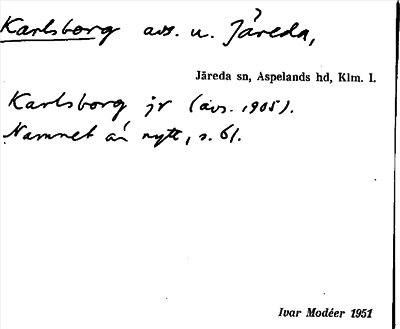 Karlsborg avs. u. Järeda,
Järeda sn, Aspelands hd, Klm. l.
Karlsborg jr (avs. 1905).
Namnet är nytt, s. 61.
Ivar Modéer 1951